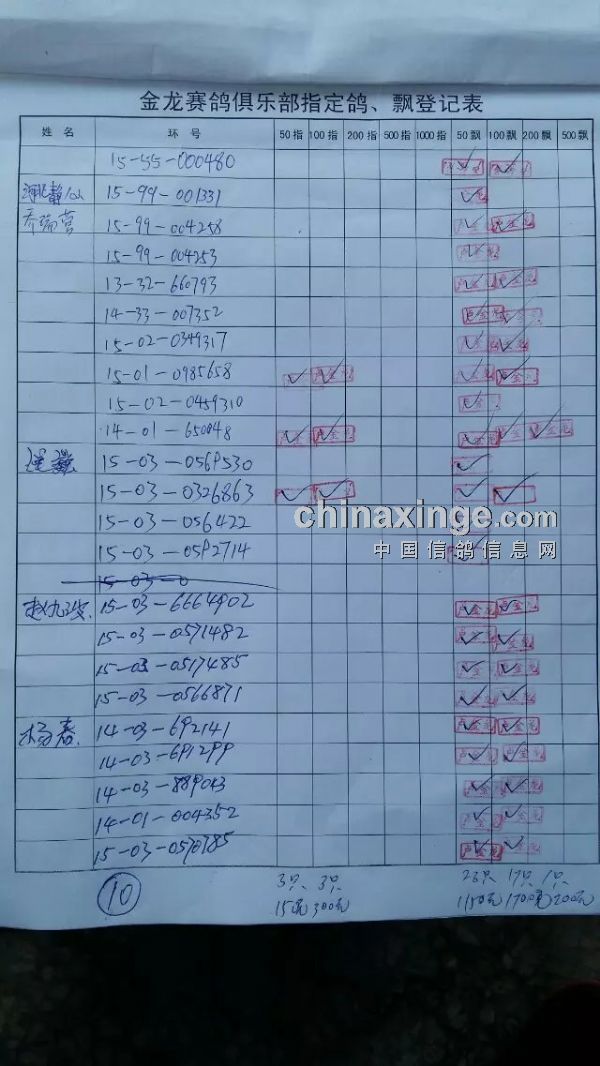 金龙赛鸽俱乐部指定鸽、飘登记表
姓 名 环 号 50指 100指 200指 500指 1000指 50飘 100飘 200飘 500飘
15-55-000480
15-99-001331
乔瑞营 15-99-004258
15-99-004253
13-32-660793
14-33-007352
15-02-0349317
15-01-0985658
15-02-0459310
14-01-650048
15-03-0569530
15-03-0326863
15-03-056422
15-03-0592714
15-03-0
15-03-6664902
15-03-0571482
15-03-0517485
15-03-0566871
杨春 14-03-692141
14-03-691299
14-03-889043
14-01-004352
15-03-0570785
chinaxinge.com
中国信鸽信息网
10
3只 3只 23只 17只 1只
150元 300元 1150元 1700元 200元